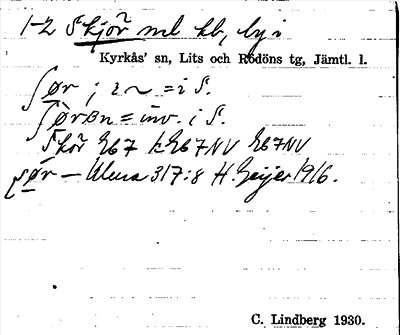 1-2 Skjör ml kb, by i
Kyrkås' sn, Lits och Rödöns tg, Jämtl. l.
ʃør ; 2 ~ = i S.
ʃørɞn = inv. i S.
Skör 267 k 267NV 267NV
— 317:8 H. Geijer 1916.
C. Lindberg 1930.